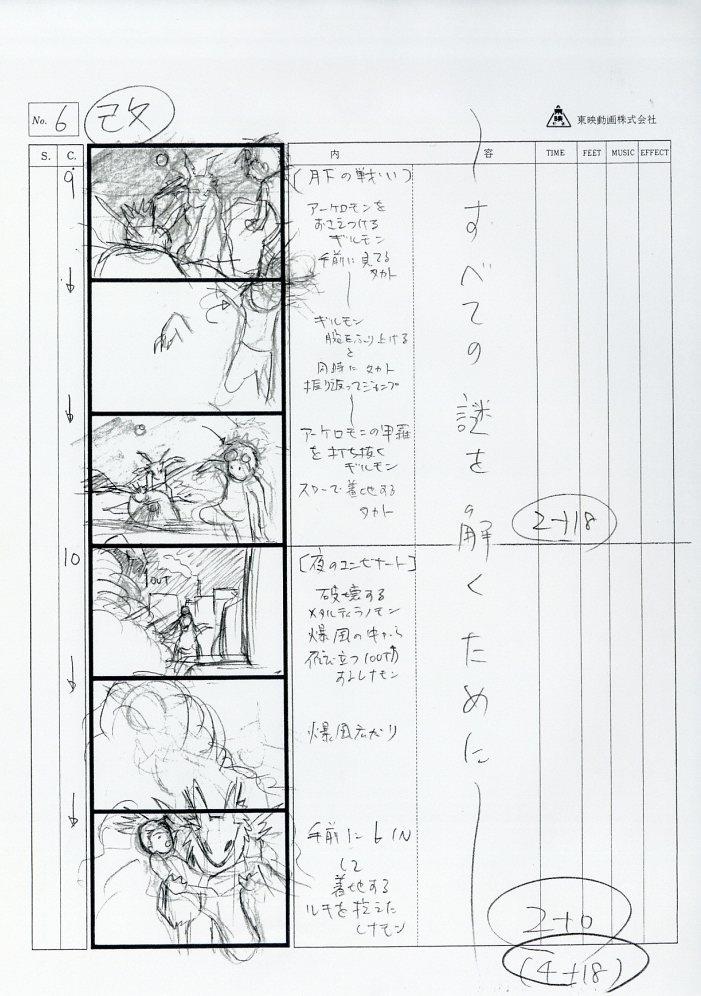 No. 6
改
東映動画株式会社
S.
C.
内
容
TIME
FEET
MUSIC
EFFECT
9
[月下の戦い]
アーケロモンを
おさえつける
ギルモン
手前に見てる
タカト
ギルモン
腕をふり上げる
と
同時に タカト
振り返ってジャンプ
アーケロモンの甲羅
を打ち抜く
ギルモン
スローで着地する
タカト
2+18
すべての謎を解くために
10
[夜のコンビナート]
OUT
破壊する
メタルティラノモン
爆風の中から
爆風広がり
手前に b IN
して
着地する
ルキを抱えた
レナモン
2+0
(4+18)